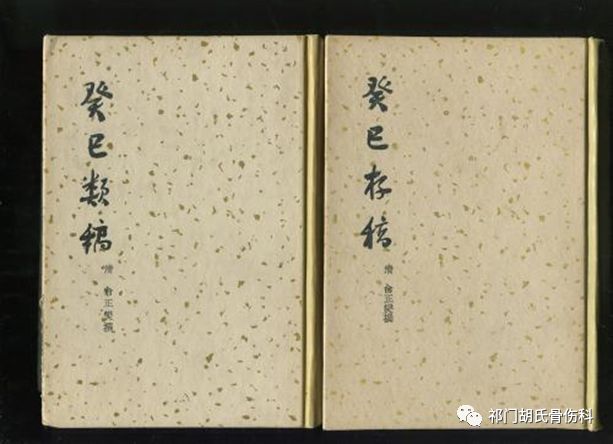 癸巳類稿
清 俞正燮撰
癸巳存稿
清 俞正燮撰
祁门胡氏骨伤科